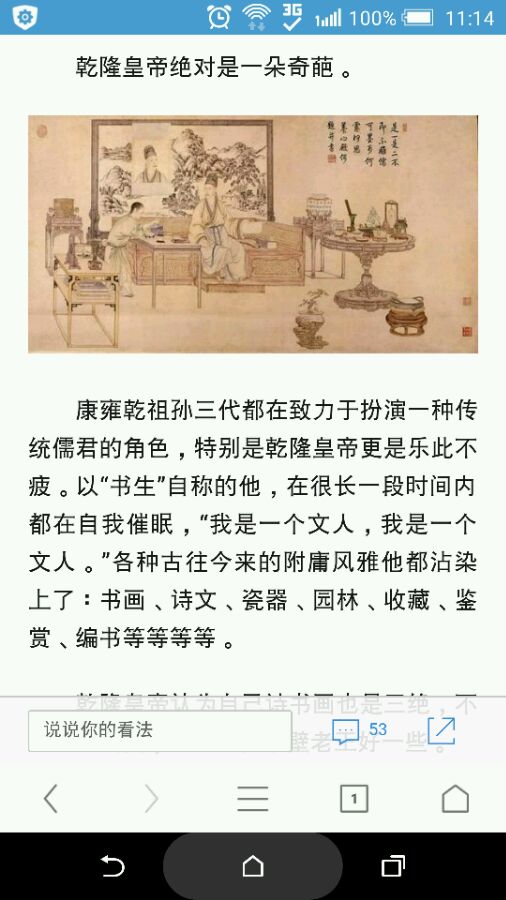 3G 100% 11:14
乾隆皇帝绝对是一朵奇葩。
是一是二不
即不离儒
可墨可何
虑何思
康雍乾祖孙三代都在致力于扮演一种传
统儒君的角色，特别是乾隆皇帝更是乐此不
疲。以“书生”自称的他，在很长一段时间内
都在自我催眠，“我是一个文人，我是一个
文人。”各种古往今来的附庸风雅他都沾染
上了：书画、诗文、瓷器、园林、收藏、鉴
赏、编书等等等等。
乾隆皇帝认为自己诗书画也是三绝，不
说说你的看法 53
壁老王好一些。
1